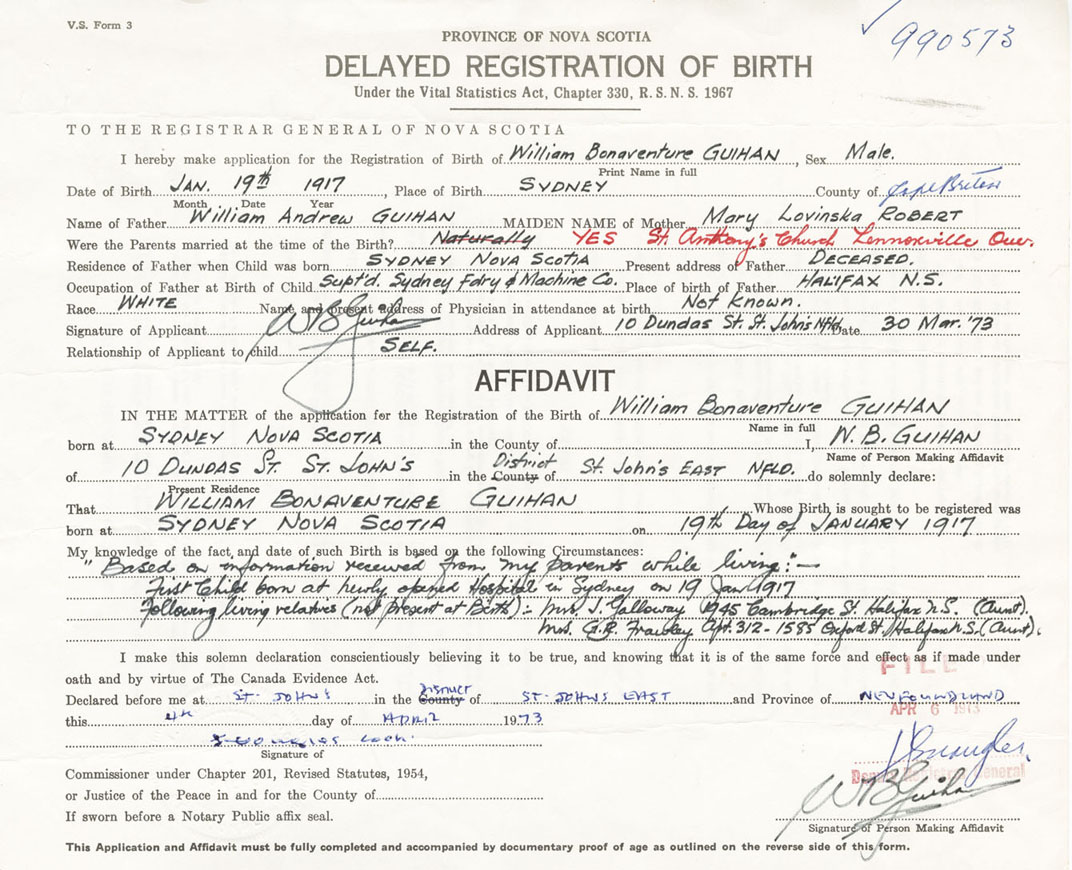 V.S. Form 3
990573
PROVINCE OF NOVA SCOTIA
DELAYED REGISTRATION OF BIRTH
Under the Vital Statistics Act, Chapter 330, R.S.N.S. 1967
TO THE REGISTRAR GENERAL OF NOVA SCOTIA
I hereby make application for the Registration of Birth of William Bonaventure GUIHAN, Sex Male.
Print Name in full
Date of Birth JAN. 19th 1917, Place of Birth SYDNEY County of Cape Breton
Month Date Year
Name of Father William Andrew GUIHAN MAIDEN NAME of Mother Mary Lovinska ROBERT
Were the Parents married at the time of the Birth? Naturally YES St. Anthony's Church Lennoxville Que.
Residence of Father when Child was born SYDNEY NOVA SCOTIA Present address of Father DECEASED.
Occupation of Father at Birth of Child Supt'd. Sydney Fdry & Machine Co. Place of birth of Father HALIFAX N.S.
Race WHITE Name and present address of Physician in attendance at birth Not Known.
Signature of Applicant WBGuihan Address of Applicant 10 Dundas St. St. John's Nfld Date 30 Mar. '73
Relationship of Applicant to child SELF.
AFFIDAVIT
IN THE MATTER of the application for the Registration of the Birth of William Bonaventure GUIHAN
Name in full
born at SYDNEY NOVA SCOTIA in the County of I, W. B. GUIHAN
Name of Person Making Affidavit
of 10 DUNDAS ST. ST. JOHN'S in the County District of ST. JOHN'S EAST NFLD. do solemnly declare:
Present Residence
That WILLIAM BONAVENTURE GUIHAN Whose Birth is sought to be registered was
born at SYDNEY NOVA SCOTIA on 19th Day of JANUARY 1917
My knowledge of the fact, and date of such Birth is based on the following Circumstances:
"Based on information received from my parents while living:"—
First Child born at newly opened Hospital in Sydney on 19 Jan 1917
Following living relatives (not present at Birth):- Mrs. J. Galloway 1945 Cambridge St. Halifax N.S. (Aunt).
Mrs. G.R. Frawley Apt. 312 - 1585 Oxford St. Halifax N.S. (Aunt).
I make this solemn declaration conscientiously believing it to be true, and knowing that it is of the same force and effect as if made under
oath and by virtue of The Canada Evidence Act.
Declared before me at ST. JOHN'S in the County District of ST. JOHNS EAST and Province of NEWFOUNDLAND
this 4th day of APRIL 1973
APR 6
Signature of
Commissioner under Chapter 201, Revised Statutes, 1954,
or Justice of the Peace in and for the County of
Deputy Registrar General
If sworn before a Notary Public affix seal.
WBGuihan
Signature of Person Making Affidavit
This Application and Affidavit must be fully completed and accompanied by documentary proof of age as outlined on the reverse side of this form.